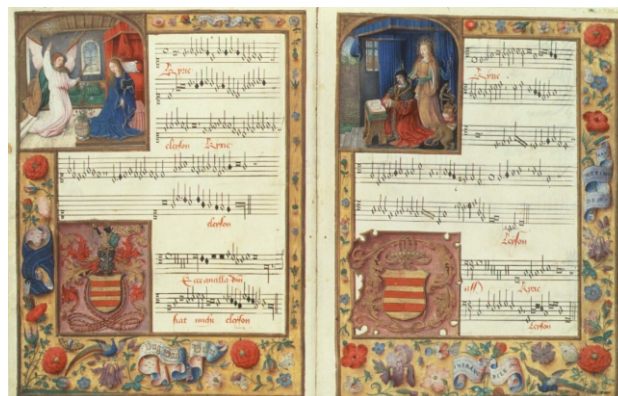 Kyrie
eleyson Kyrie
eleyson
Ecce ancilla dni
fiat michi eleyson
Kyrie
Leyson
Kyrie
Leyson